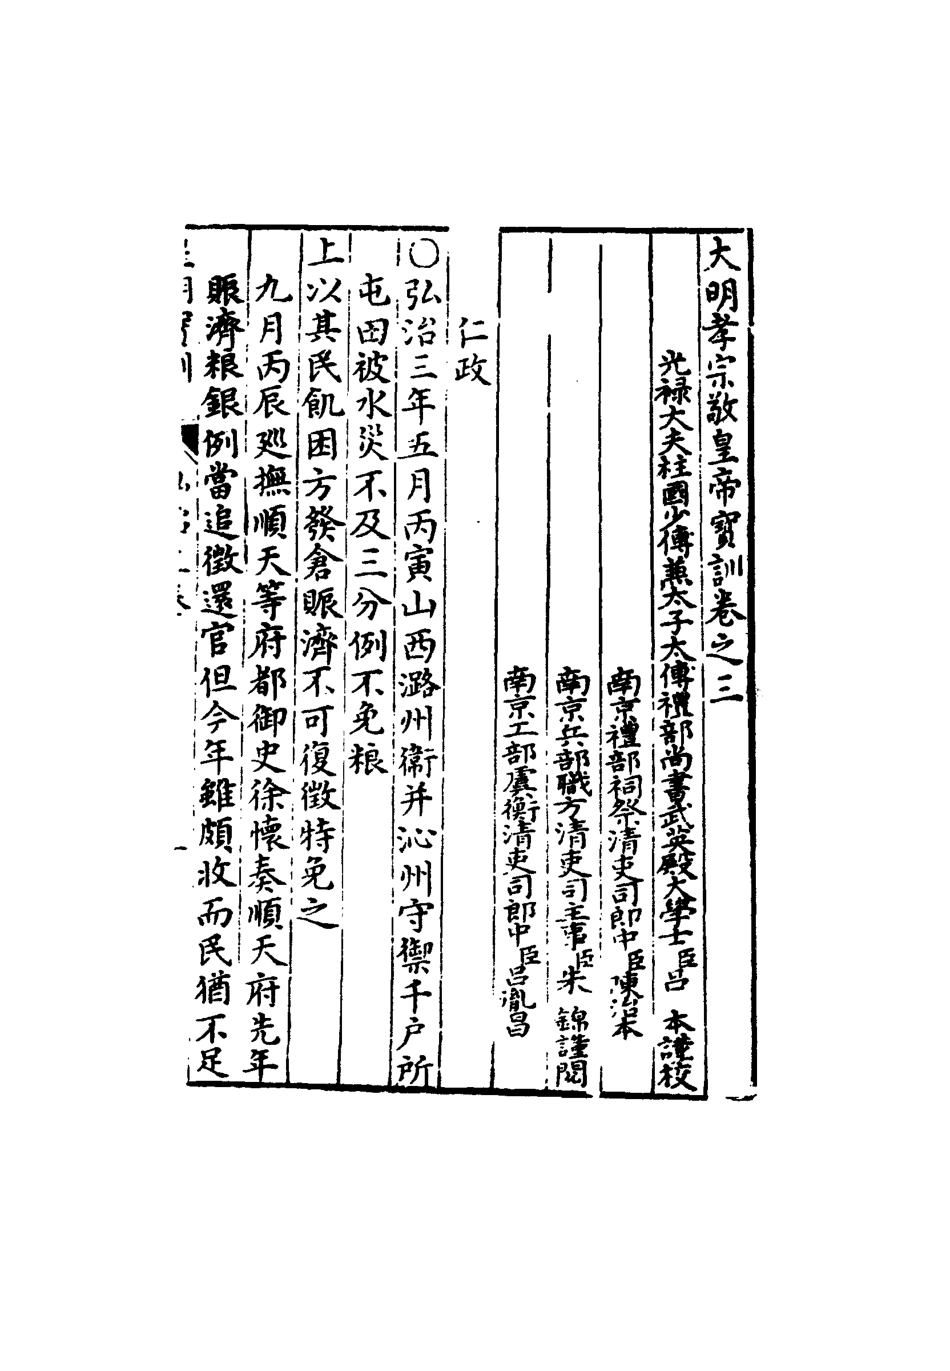 大明孝宗敬皇帝寶訓卷之三
光禄大夫柱國少傅兼太子太傅禮部尚書武英殿大學士臣呂本謹校
南京禮部祠祭清吏司郎中臣陳治本
南京兵部職方清吏司主事臣朱錦謹閱
南京工部虞衡清吏司郎中臣呂胤昌
仁政
○弘治三年五月丙寅山西潞州衛并沁州守禦千户所
屯田被水災不及三分例不免粮
上以其民飢困方發倉賑濟不可復徵特免之
九月丙辰廵撫順天等府都御史徐懷奏順天府先年
賑濟粮銀例當追徵還官但今年雖頗收而民猶不足